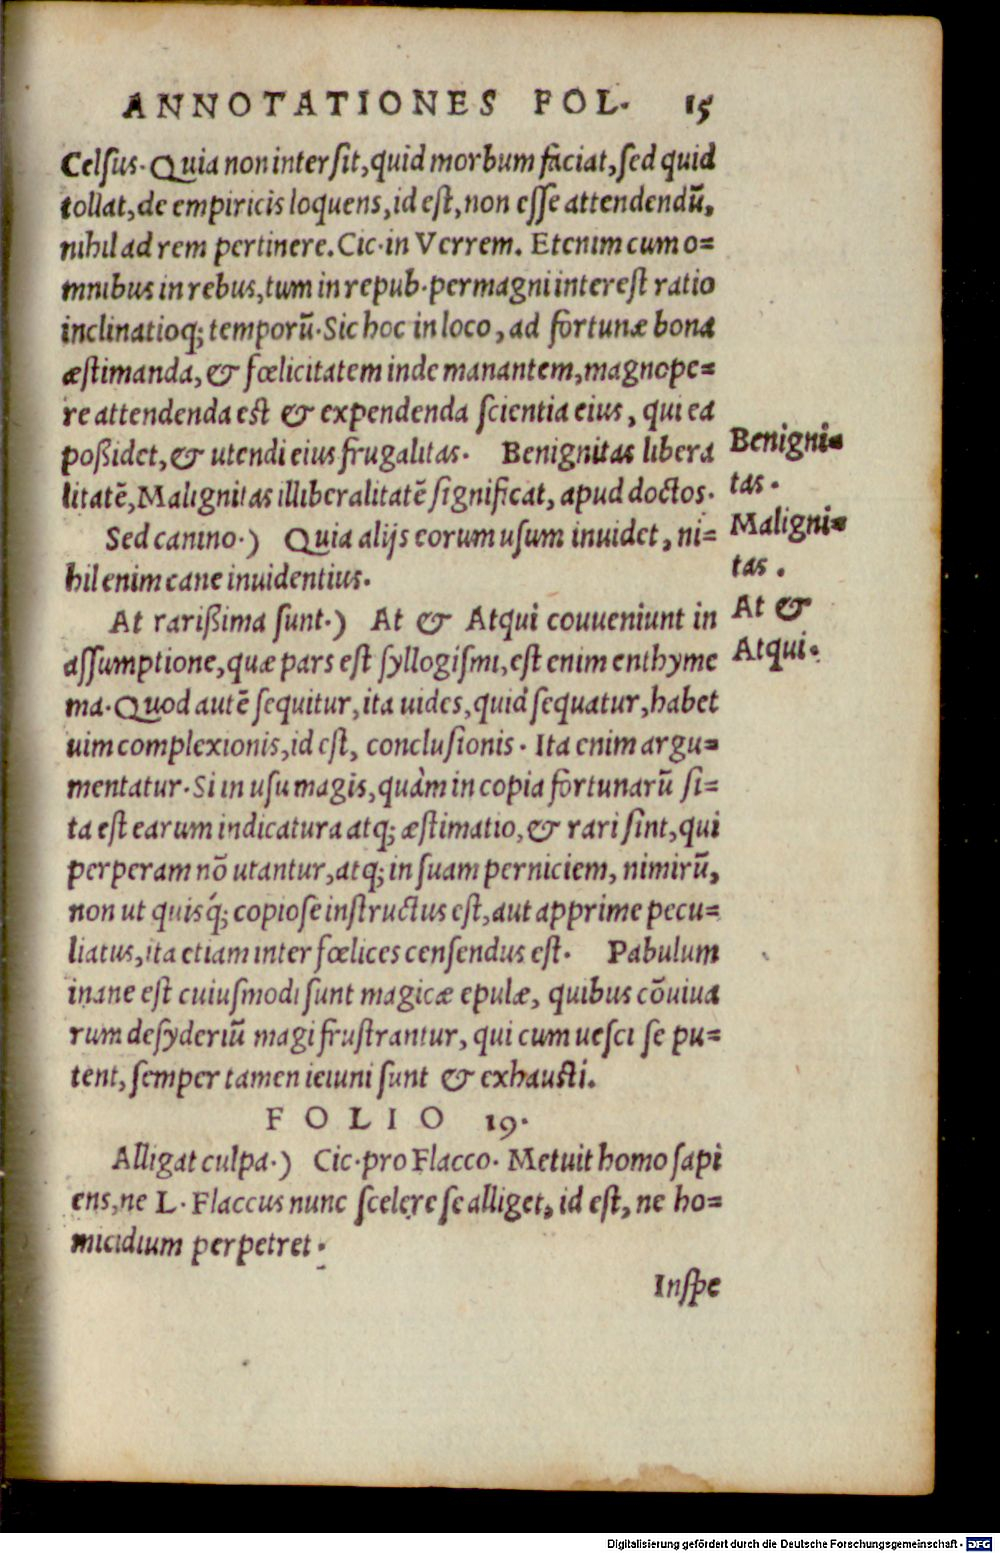 ANNOTATIONES FOL. 15
Celſus. Quia non interſit, quid morbum faciat, ſed quid
tollat, de empiricis loquens, id eſt, non eſſe attendendũ,
nihil ad rem pertinere. Cic. in Verrem. Etenim cum o=
mnibus in rebus, tum in repub. permagni intereſt ratio
inclinatioq; temporũ. Sic hoc in loco, ad fortunæ bona
æſtimanda, & fœlicitatem inde manantem, magnope=
re attendenda eſt & expendenda ſcientia eius, qui ea
poßidet, & utendi eius frugalitas. Benignitas libera
litatẽ, Malignitas illiberalitatẽ ſignificat, apud doctos.
Benigni=
tas.
Sed canino.) Quia alijs eorum uſum inuidet, ni=
hil enim cane inuidentius.
Maligni=
tas.
At rarißima ſunt.) At & Atqui couueniunt in
aſſumptione, quæ pars eſt ſyllogiſmi, eſt enim enthyme
At &
Atqui.
ma. Quod autẽ ſequitur, ita uides, quid ſequatur, habet
uim complexionis, id eſt, concluſionis. Ita enim argu=
mentatur. Si in uſu magis, quàm in copia fortunarũ ſi=
ta eſt earum indicatura atq; æſtimatio, & rari ſint, qui
perperam nõ utantur, atq; in ſuam perniciem, nimirũ,
non ut quisq́; copioſe inſtructus eſt, aut apprime pecu=
liatus, ita etiam inter fœlices cenſendus eſt. Pabulum
inane eſt cuiuſmodi ſunt magicæ epulæ, quibus cõuiua
rum deſyderiũ magi fruſtrantur, qui cum ueſci ſe pu=
tent, ſemper tamen ieiuni ſunt & exhauſti.
FOLIO 19.
Alligat culpa.) Cic. pro Flacco. Metuit homo ſapi
ens, ne L. Flaccus nunc ſcelere ſe alliget, id eſt, ne ho=
micidium perpetret.
Inſpe
Digitalisierung gefördert durch die Deutsche Forschungsgemeinschaft - DFG